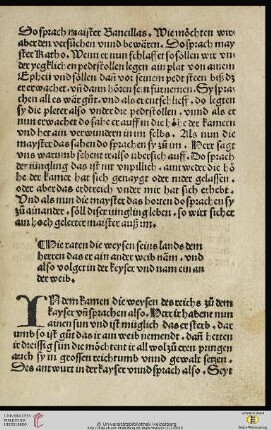 Do sprach maister Bancillas. Wie möchten wir
aber den versüchen vnnd bewären. Do sprach may
ster Katho. Wenn er nun schlaffet so söllen wir vn=
der yegklichen pedstollen legen ain plat von ainem
Epheü vnd söllen dañ vor seinem pedt steen biß dz
er erwachet. vñ dann hören sein fürnemen. Sy spra
chen all es wär güt. vnd als er entschlieff. do legten
sy die pleter also vnder die pedstollen. vnnd als er
nun erwachet do sahe er auff in die höhe der kamern
vnd het ain verwundern in im selbs. Als nun die
mayster das sahen do sprachen sy zü im. Herr sagt
vns warumb sehent ir also übersich auff. Do sprach
der iüngling das ist nit vnpillich. antweder die hö
he der kamer hat sich genaygt oder nider gelassen.
oder aber das erdtreich vnder mir hat sich erhebt.
Vnd als nun die mayster das horten do sprachen sy
zü ainander. söll diser iüngling leben. so wirt sicher
ain hoch gelerter maister auß im.
Wie raten die weysen seins lands dem
herren das er ain ander weib näm. vnd
also volget in der keyser vnd nam ein an
der weib.
In dem kamen die weysen des reichs zü dem
kayser vñ sprachen also. Herr ir haben nun
ainen sun vnd ist müglich das er sterb. dar
umb so ist güt das ir ain weib nemendt. dañ hetten
ir dreissig sün die möchtent ir all wol zü eren pringen
auch sy in grossen reichtumb vnnd gewalt setzen.
Des antwurt in der kayser vnnd sprach also. Seyt
Universitätsbibliothek Heidelberg